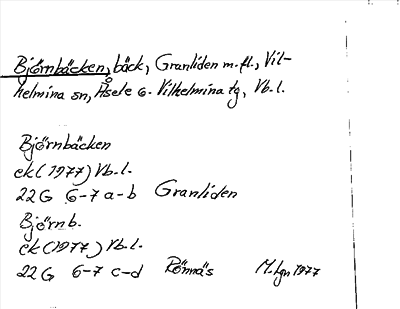 Björnbäcken, bäck, Granliden m.fl., Vil-
helmina sn, Åsele o. Vilhelmina tg, Vb.l.
Björnbäcken
ek (1977) Vb.l.
22G 6-7 a-b Granliden
Björnb.
ek (1977) Vb.l.
22G 6-7 c-d Rönnäs M.hgn 1977